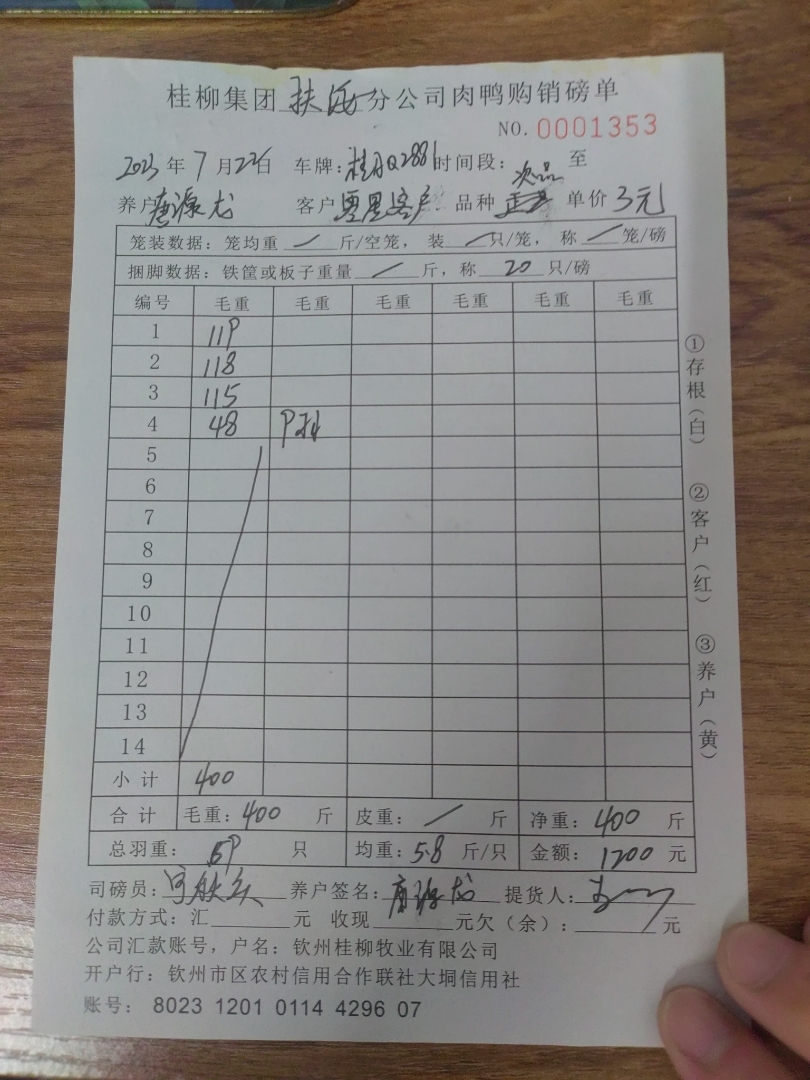 桂柳集团扶海分公司肉鸭购销磅单
NO. 0001353
2023年7月22日 车牌:桂AQ2881 时间段: 至
养户唐源龙 客户零星客户 品种次品 单价3元
笼装数据:笼均重 / 斤/空笼,装 / 只/笼,称 / 笼/磅
捆脚数据:铁筐或板子重量 / 斤,称 20 只/磅
编号 毛重 毛重 毛重 毛重 毛重 毛重
1 119
2 118
3 115
4 48 9只
5
6
7
8
9
10
11
12
13
14
小计 400
合计 毛重:400 斤 皮重: / 斤 净重:400 斤
总羽重: 69 只 均重:5.8 斤/只 金额:1200 元
司磅员: 养户签名:唐源龙 提货人:
付款方式:汇 元 收现 元欠(余): 元
公司汇款账号,户名:钦州桂柳牧业有限公司
开户行:钦州市区农村信用合作联社大垌信用社
账号: 8023 1201 0114 4296 07
①存根(白)
②客户(红)
③养户(黄)